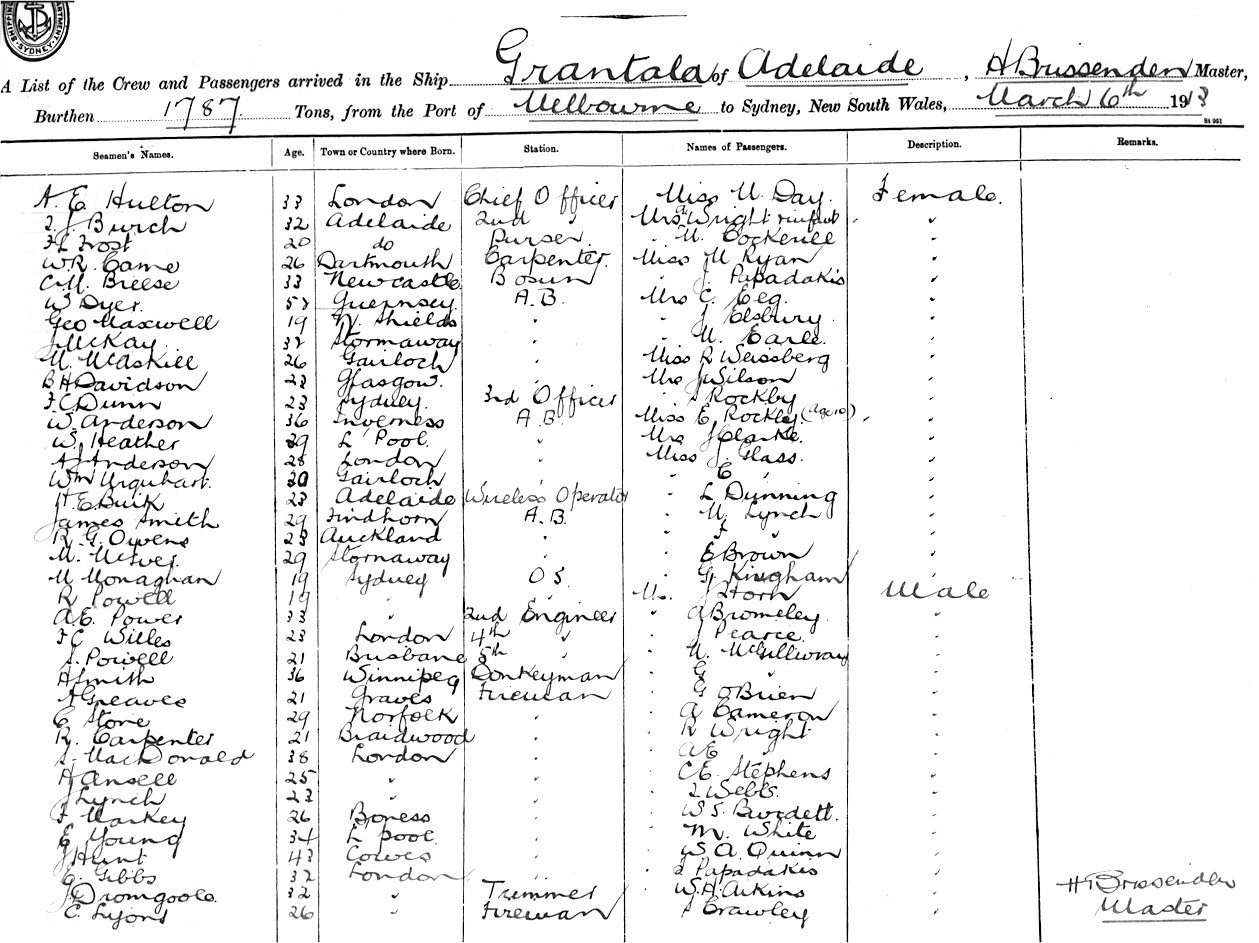 SHIPPING DEPARTMENT. SYDNEY.
A List of the Crew and Passengers arrived in the Ship Grantala of Adelaide, H Brissenden Master,
Burthen 1787 Tons, from the Port of Melbourne to Sydney, New South Wales, March 6th 1913
St 951
Seamen's Names. Age. Town or Country where Born. Station. Names of Passengers. Description. Remarks.
A. E. Hulton 33 London Chief Officer Miss M. Day. Female.
J. Burch 32 Adelaide 2nd " Mrs Wright & infant "
H L Frost 20 do Purser " M. Cockerill "
W. R. Came 26 Dartmouth Carpenter. Miss M Ryan "
C. M. Breese 33 Newcastle Bosun " J. Papadakis "
W. Dyer. Guernsey. A.B. Mrs C. Eeg. "
Geo Maxwell 19 N. Shields " " J Elsbury "
J McKay. 32 Stornaway " " M. Earle. "
M. McAskill 26 Gairloch " Miss R Weissberg "
B H Davidson 23 Glasgow. " Mrs J Wilson "
F. C. Dunn 23 Sydney. 3rd Officer " S Rockley "
W. Anderson 36 Inverness A.B. Miss E. Rockley (Age 10) "
W. Heather 39 L'Pool. " Mrs J Clarke. "
A J Anderson 28 London " Miss J. Glass. "
Wm Urquhart. 30 Gairloch " " C " "
H. E. Buik 23 Adelaide Wireless Operator " L Dunning "
James Smith 29 Findhorn A.B. " M. Lynch "
R. G. Owens 23 Auckland " " F " "
M. McIver. 29 Stornaway " " E Brown "
M Monaghan 19 Sydney O S. " G. Kingham "
R Powell 19 " " Mr J Horn Male
A. E. Power 33 " 2nd Engineer " A Bromeley. "
F C Willes 23 London 4th " " J Pearce. "
S. Powell 21 Brisbane 5th " " N. McGilliwray "
A Smith 36 Winnipeg Donkeyman " G " "
F Greaves 21 Graves Fireman " G O'Brien "
C. Stone 29 Norfolk " " A Cameron "
R. Carpenter 21 Braidwood " " R Wright "
S. MacDonald 38 London " " A E " "
H Ansell 25 " " " C E. Stephens "
J Lynch 23 " " " J Webb. "
F Markey 26 Boness " " W S. Burdett. "
E Young 34 L'pool. " " M. White "
J Hunt 43 Cowes " " W A. Quinn "
C. Gibbs 32 London " " Papadakis "
J Dromgoole. 32 " Trimmer " W. H. Aikins " H Brissenden
C. Lyons 26 " Fireman " Brawley " Master